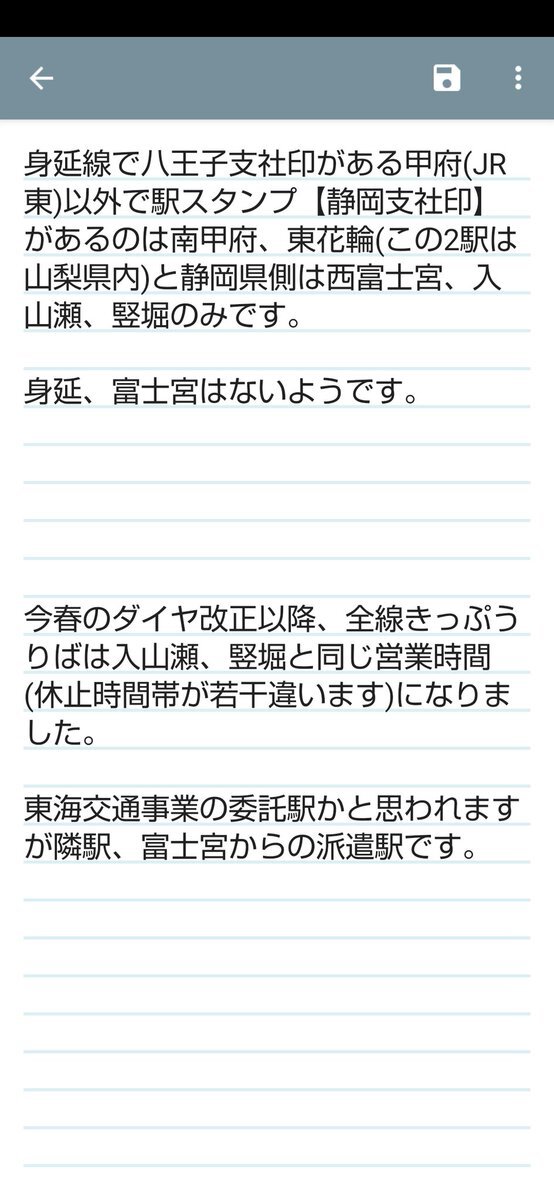 身延線で八王子支社印がある甲府(JR
東)以外で駅スタンプ【静岡支社印】
があるのは南甲府、東花輪(この2駅は
山梨県内)と静岡県側は西富士宮、入
山瀬、竪堀のみです。
身延、富士宮はないようです。
今春のダイヤ改正以降、全線きっぷう
りばは入山瀬、竪堀と同じ営業時間
(休止時間帯が若干違います)になりま
した。
東海交通事業の委託駅かと思われます
が隣駅、富士宮からの派遣駅です。